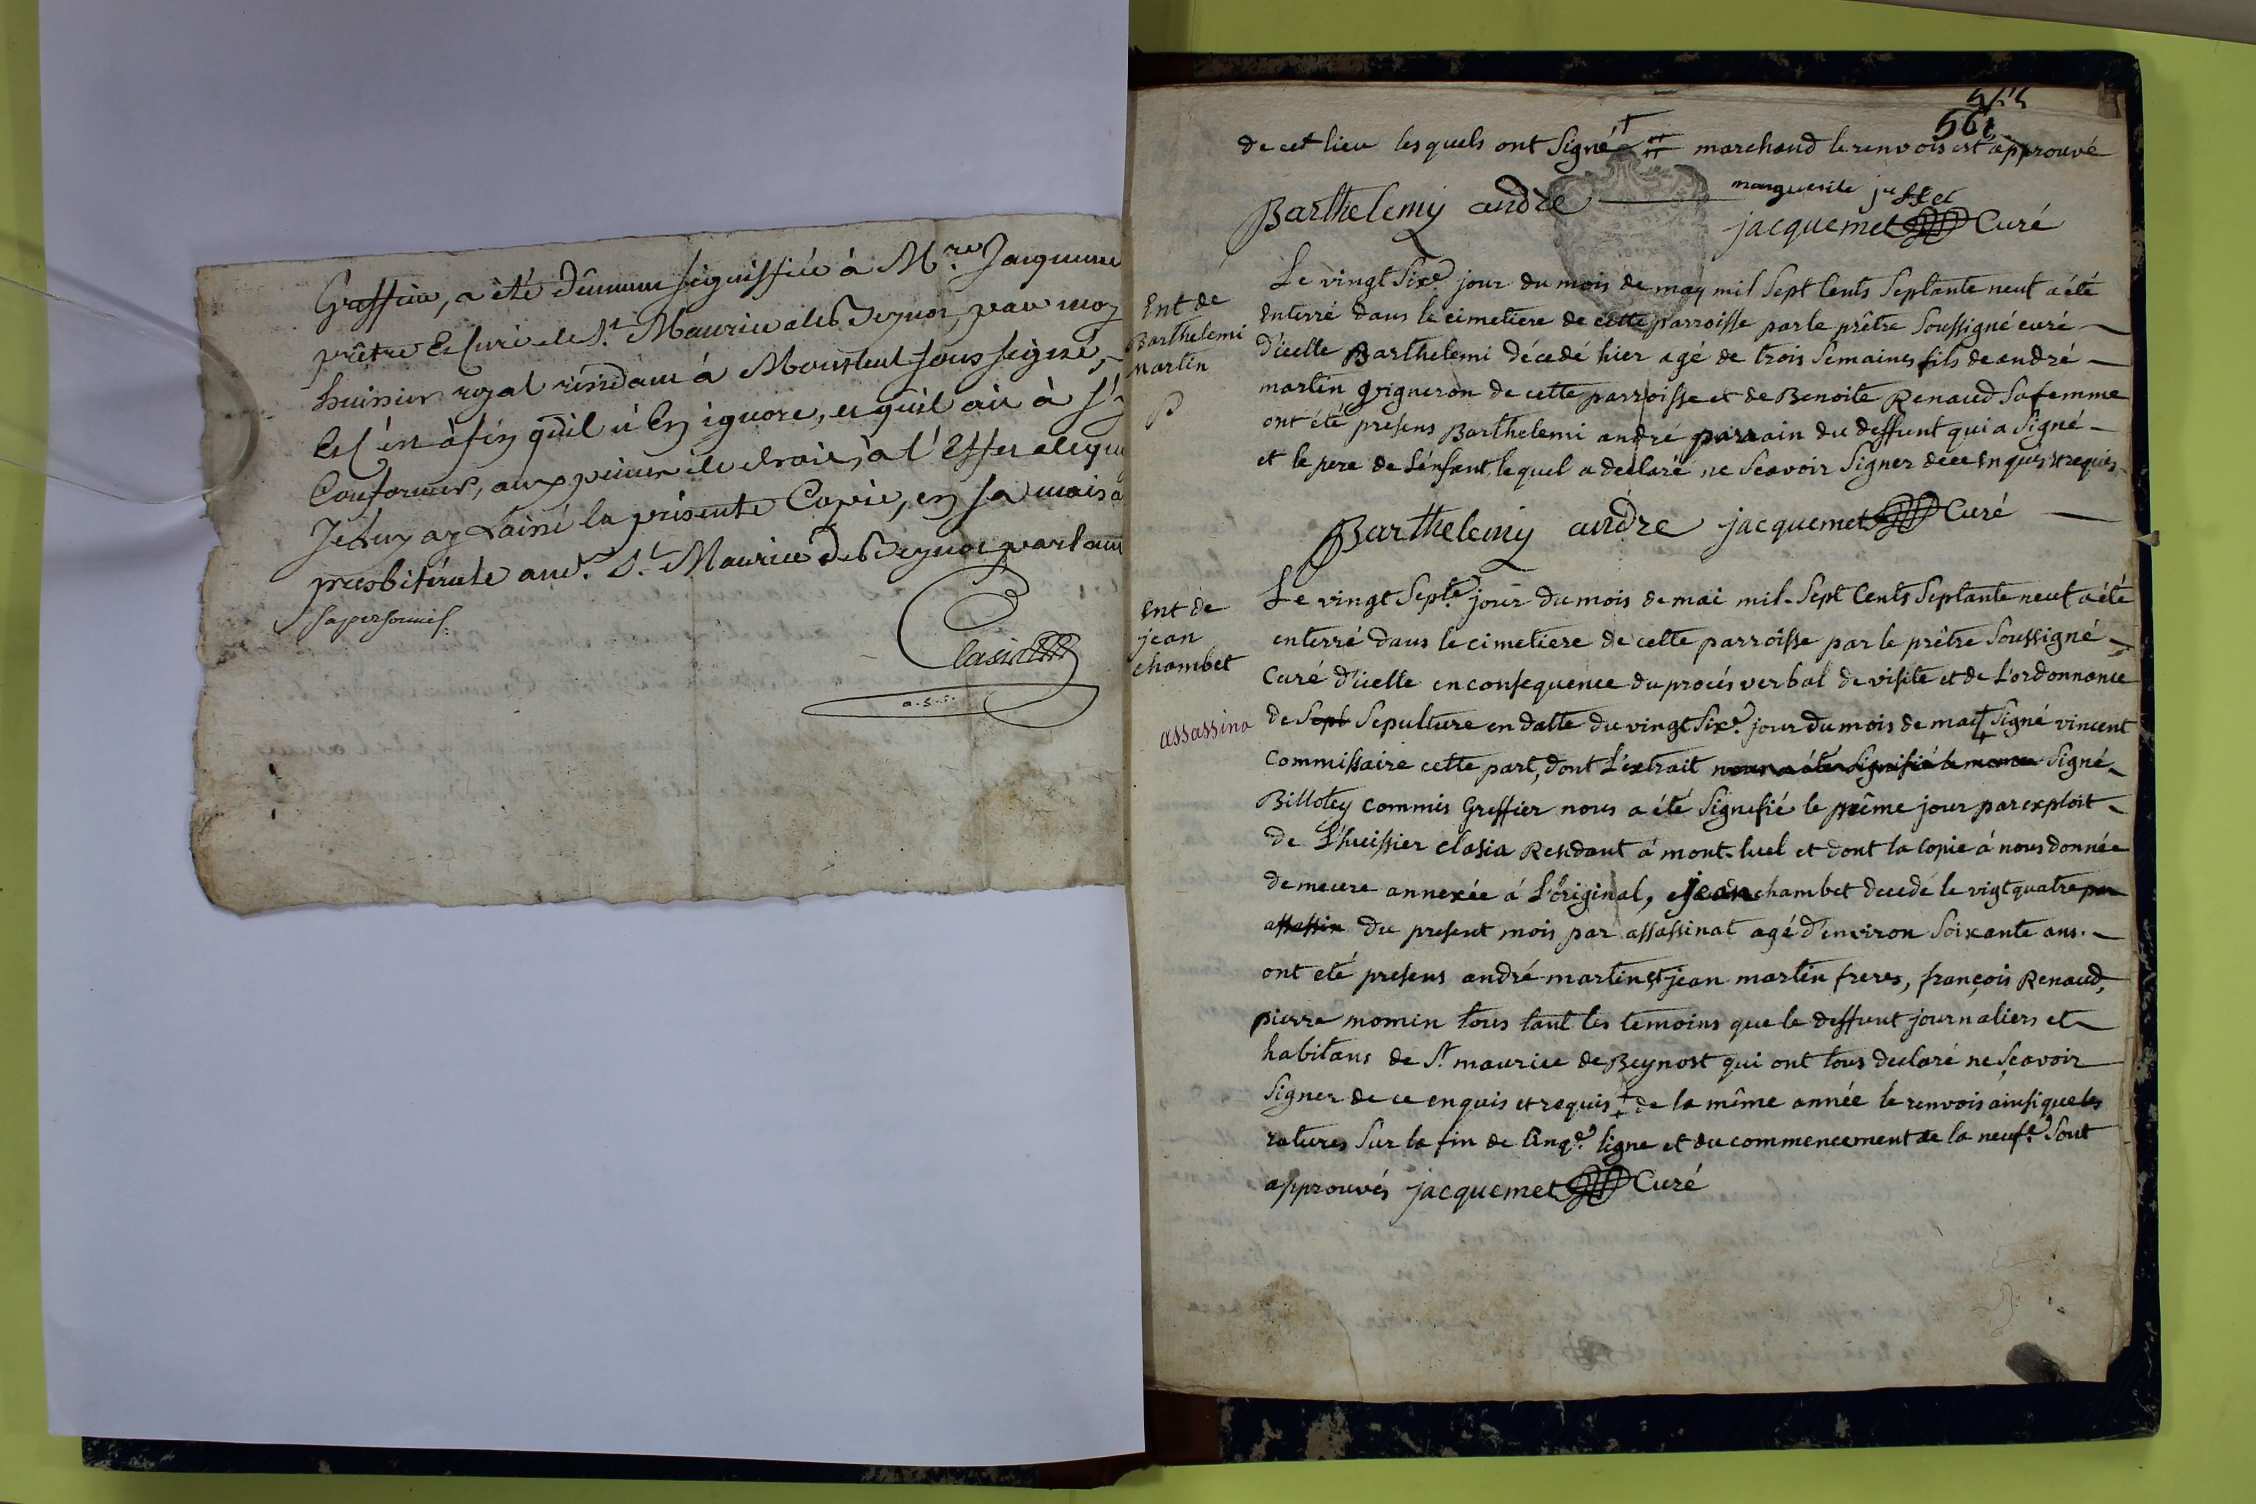 Greffier, a été dûment signiffiée à M.re Jacquemet
prêtre Et Curé de St Maurice de Beynos, par moy
huissier royal résidant à Montluel sous signé,
Et c'en àfin qu'il n'En ignore, et qu'il aie à s'y
Conformer, aux peines de droit, à l'Effet de quoy
Je luy ay Laissé la présente Copie, en sa maison
presbitérale aud. St Maurice de Beynos parlant
sa personne
Clasia
a.s.s.
561
de cet lieu lesquels ont Signé marchand le renvois est approuvé
Barthelemy andré
marguerite
jacquemet Curé
Ent de
Barthelemi
Martin
Le vingt Sixe. jour du mois de may mil Sept Cents Septante neuf a été
Enterré dans le cimetiere de cette parroisse par le prêtre Soussigné curé
D'icelle Barthelemi décedé hier agé de trois Semaines fils de andré
martin vigneron de cette parroisse et de Benoite Renaud Sa femme
ont été présens Barthelemi andré parrain du deffunt qui a Signé
et le pere de L'enfant lequel a declaré ne Scavoir Signer de ce Enquis et requis
Barthelemy andre jacquemet Curé
Ent de
jean
chambet
assassina
Le vingt Septe. jour du mois de mai mil Sept Cents Septante neuf a été
enterré dans le cimetiere de cette parroisse par le prêtre Soussigné
Curé D'icelle en consequence du procés verbal de visite et de L'ordonnance
de Sept Sepulture en datte du vingt Sixe. jour du mois de mai + Signé vincent
Commissaire cette part, dont L'extrait nous a été Signifié le même Signé
Billotey commis Greffier nous a été Signifié le même jour par exploit
de L'huissier clasia Residant á mont-luel et dont la copie á nous donnée
demeure annexée á L'original, jean chambet decedé le vigt quatre par
assassin du present mois par assassinat agé d'environ Soixante ans.
ont eté presens andré martin et jean martin freres, françois Renaud,
pierre momin tous tant les temoins que le deffunt journaliers et
habitans de St. maurice de Beynost qui ont tous declaré ne Scavoir
Signer de ce enquis et requis + de la même année le renvois ainsi que les
ratures Sur la fin de Cinqe. ligne et du commencement de la neufe. Sont
approuvés jacquemet Curé